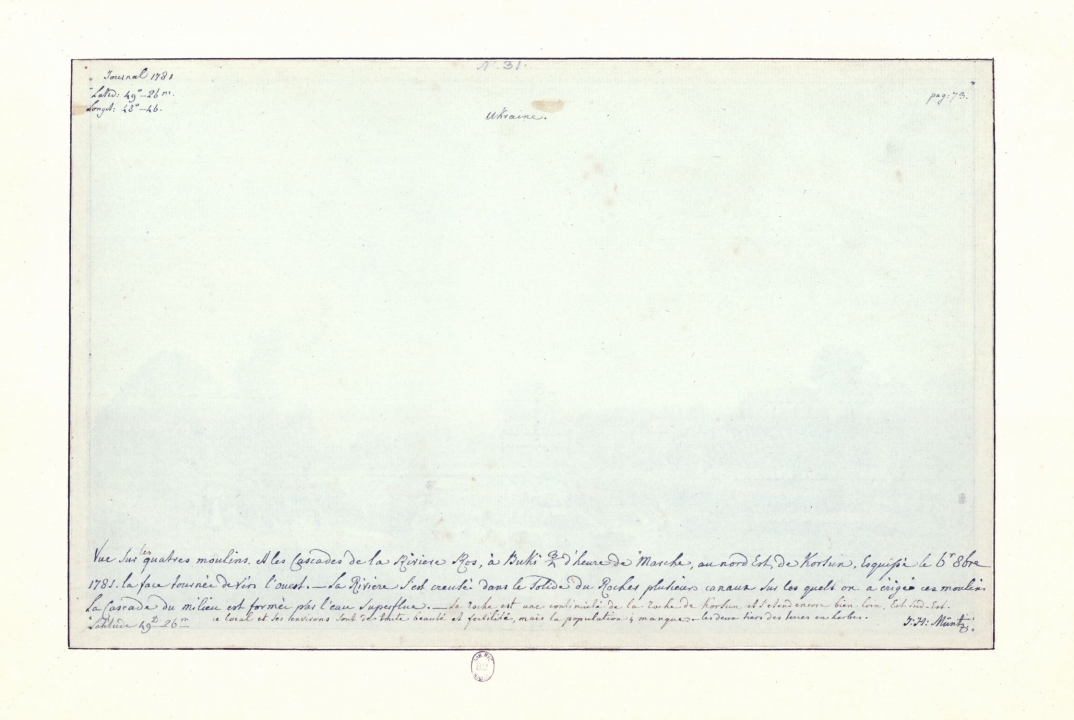 N° 31.
Journal 1781
Latid: 49°-26m.
Longit: 48°-46.
pag: 73.
Ukraine.
Vue sur les quatres moulins. et les Cascades de la Riviere Ros, à Buki 3/4 d'heure de Marche, au nord Est, de Korsun, Esquisée le 6r 8bre
1781. la face tournée vèrs l'ouest. — La Riviere s'est creusée dans le Solide du Roches plusieurs canaux sur les quels on a érigé ces moulins
La Cascade du milieu est formée par l'eau Superflue. — La roche est une continuité de la roche de Korsun et s'étend encore bien loin, Est-Sud-Est.
Latitude 49d-26m ce local et ses environs sont de toute beauté et fertilité, mais la population y manque — les deux tiers des terres en herbes.
J: H: Müntz.